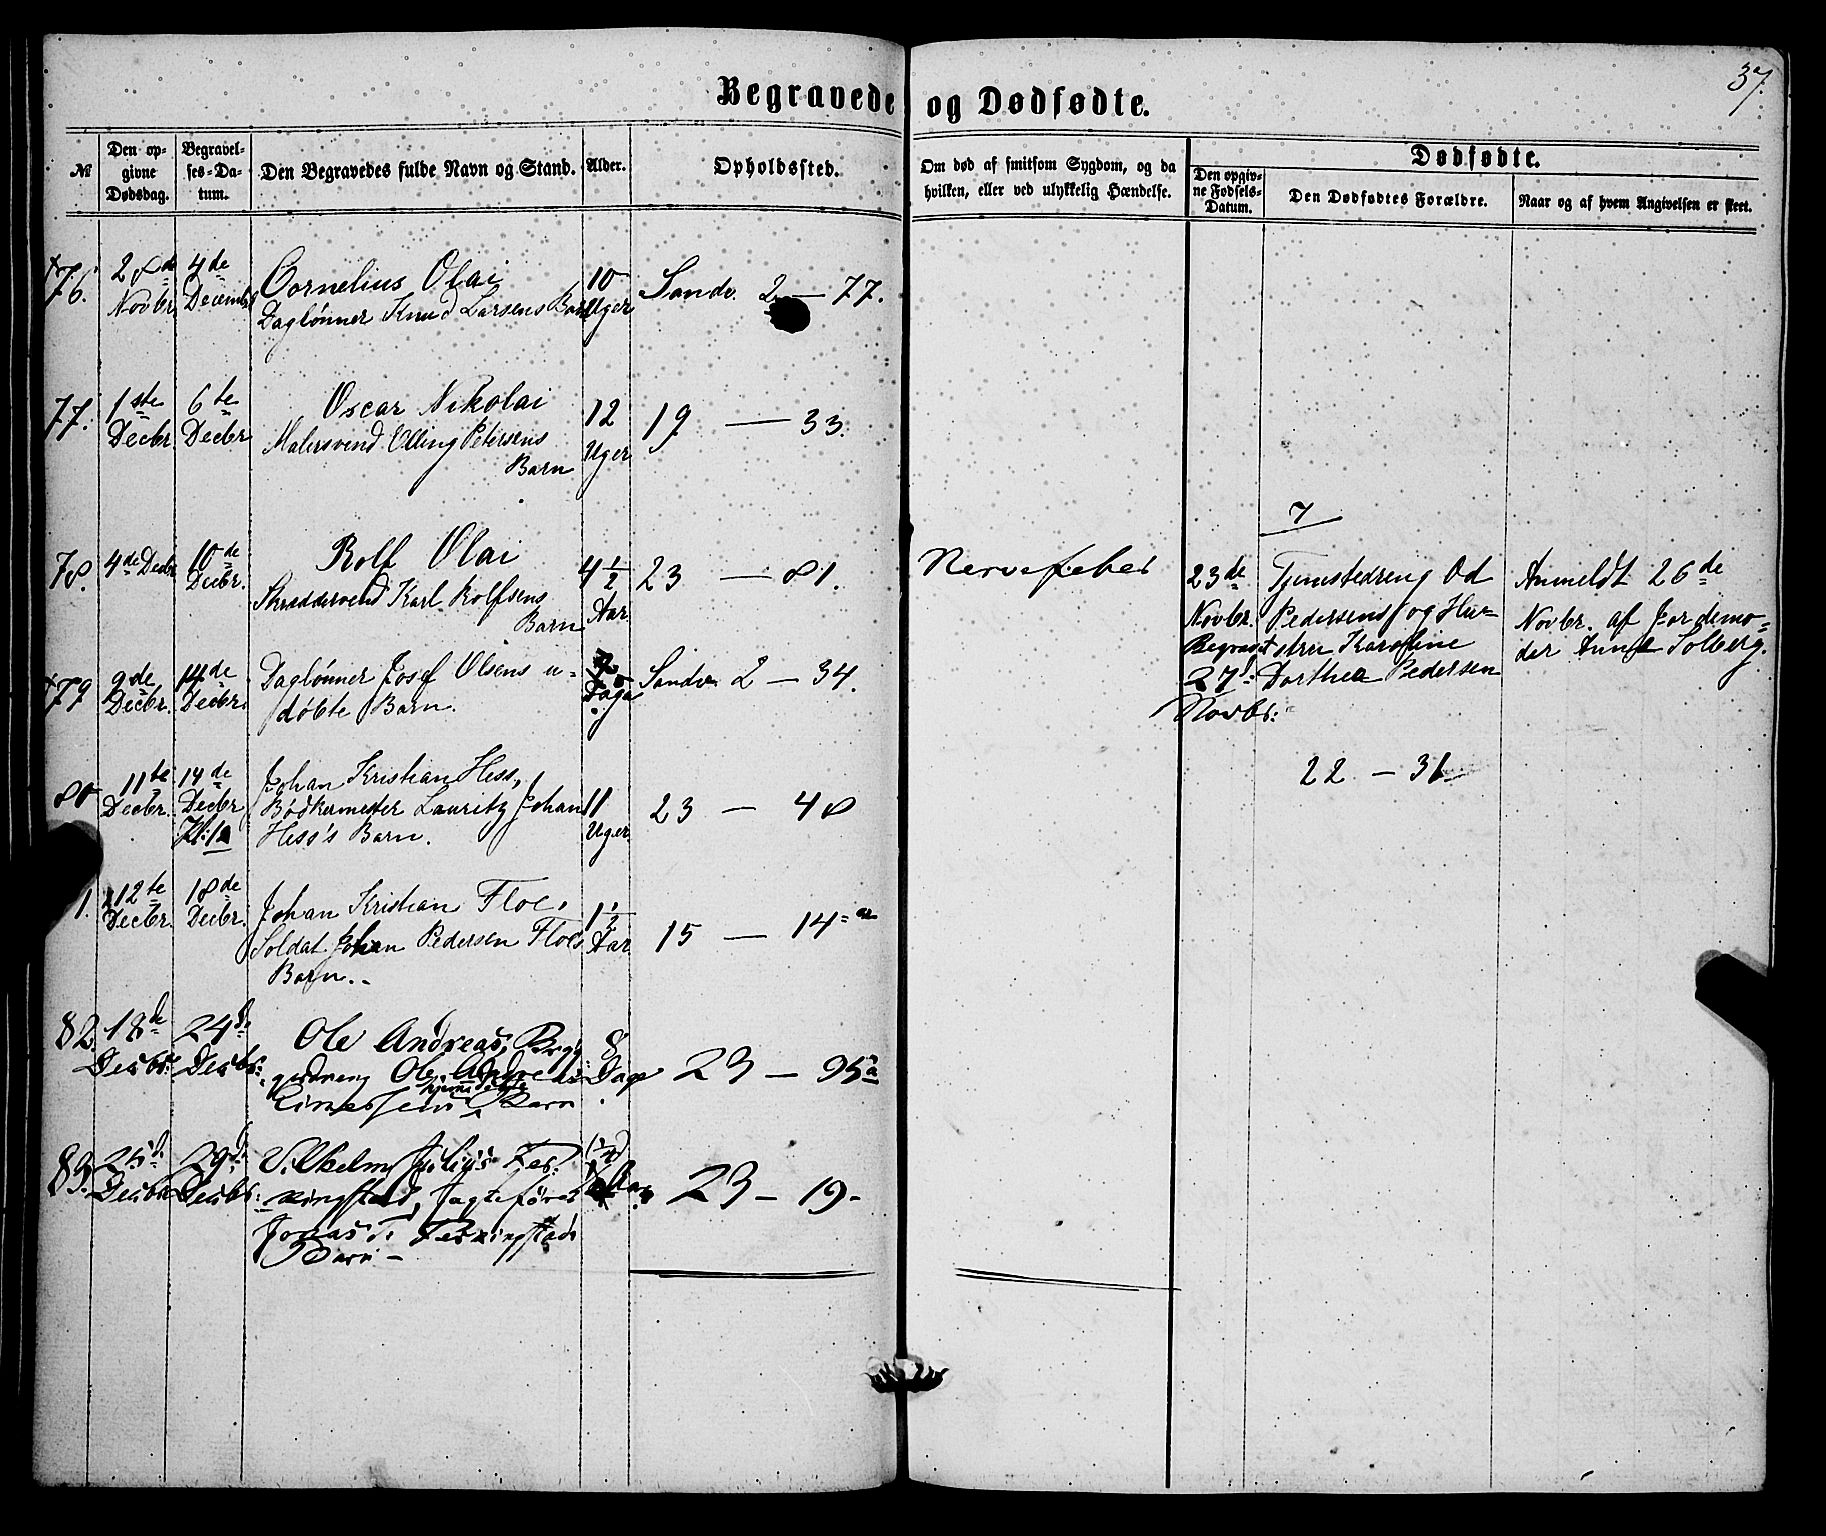 Begravede og Dødfødte.
37.
№
Den op-
givne
Dødsdag.
Begravel-
ses-Da-
tum.
Den Begravedes fulde Navn og Stand.
Alder.
Opholdssted.
Om død af smitsom Sygdom, og da
hvilken, eller ved ulykkelig Hændelse.
Dødfødte.
Den opgiv-
ne Fødsels-
Datum.
Den Dødfødtes Forældre.
Naar og af hvem Angivelsen er skeet.
+76.
28de
Novbr.
4de
Decembr
Cornelius Olai
Daglønner Knud Larsens Barn
10
Uger
Sandv. 2 — 77.
77.
1ste
Decbr.
6te
Decbr
Oscar Nikolai
Malersvend Elling Petersens
Barn
12
Uger
19 — 33.
78.
4de Decbr
10de
Decbr.
Rolf Olai
Skræddersvend Karl Rolfsens
Barn
4 1/2
Aar
23 — 81.
Nervefeber
+79
9de
Decbr.
14de
Decbr.
Daglønner Josef Olsens u-
døbte Barn.
Dage
Sandv. 2 — 34.
80
11te
Decbr.
14de
Decbr
Kl:12
Johan Kristian Hess,
Bødkermester Lauritz Johan
Hess's Barn.
11
Uger
23 — 48
1.
12te
Decbr.
18de
Decbr.
Johan Kristian Floe,
Soldat Johan Pedersen Floes
Barn.
1 1/2
Aar
15 — 14
82.
18de
Decbr.
24de
Decbr.
Ole Andreas, Bryg-
gedreng Ole Andreas
hjemmedøbte
Barn
8
Dage
23 — 95a
83.
25d.
Decbr
29d.
Decbr.
Vilhelm Julius
Jagtefører
Jonas T.
Barn —
(1/2)
Dag
23 — 19 -
7
23de
Novbr.
Begravet
27d.
Novbr.
Tjenestedreng Od
Pedersens og Hu-
stru Karoline
Dorthea Pedersen
22 — 31
Anmeldt 26de
Novbr. af Jordemo-
der Anne Solberg.